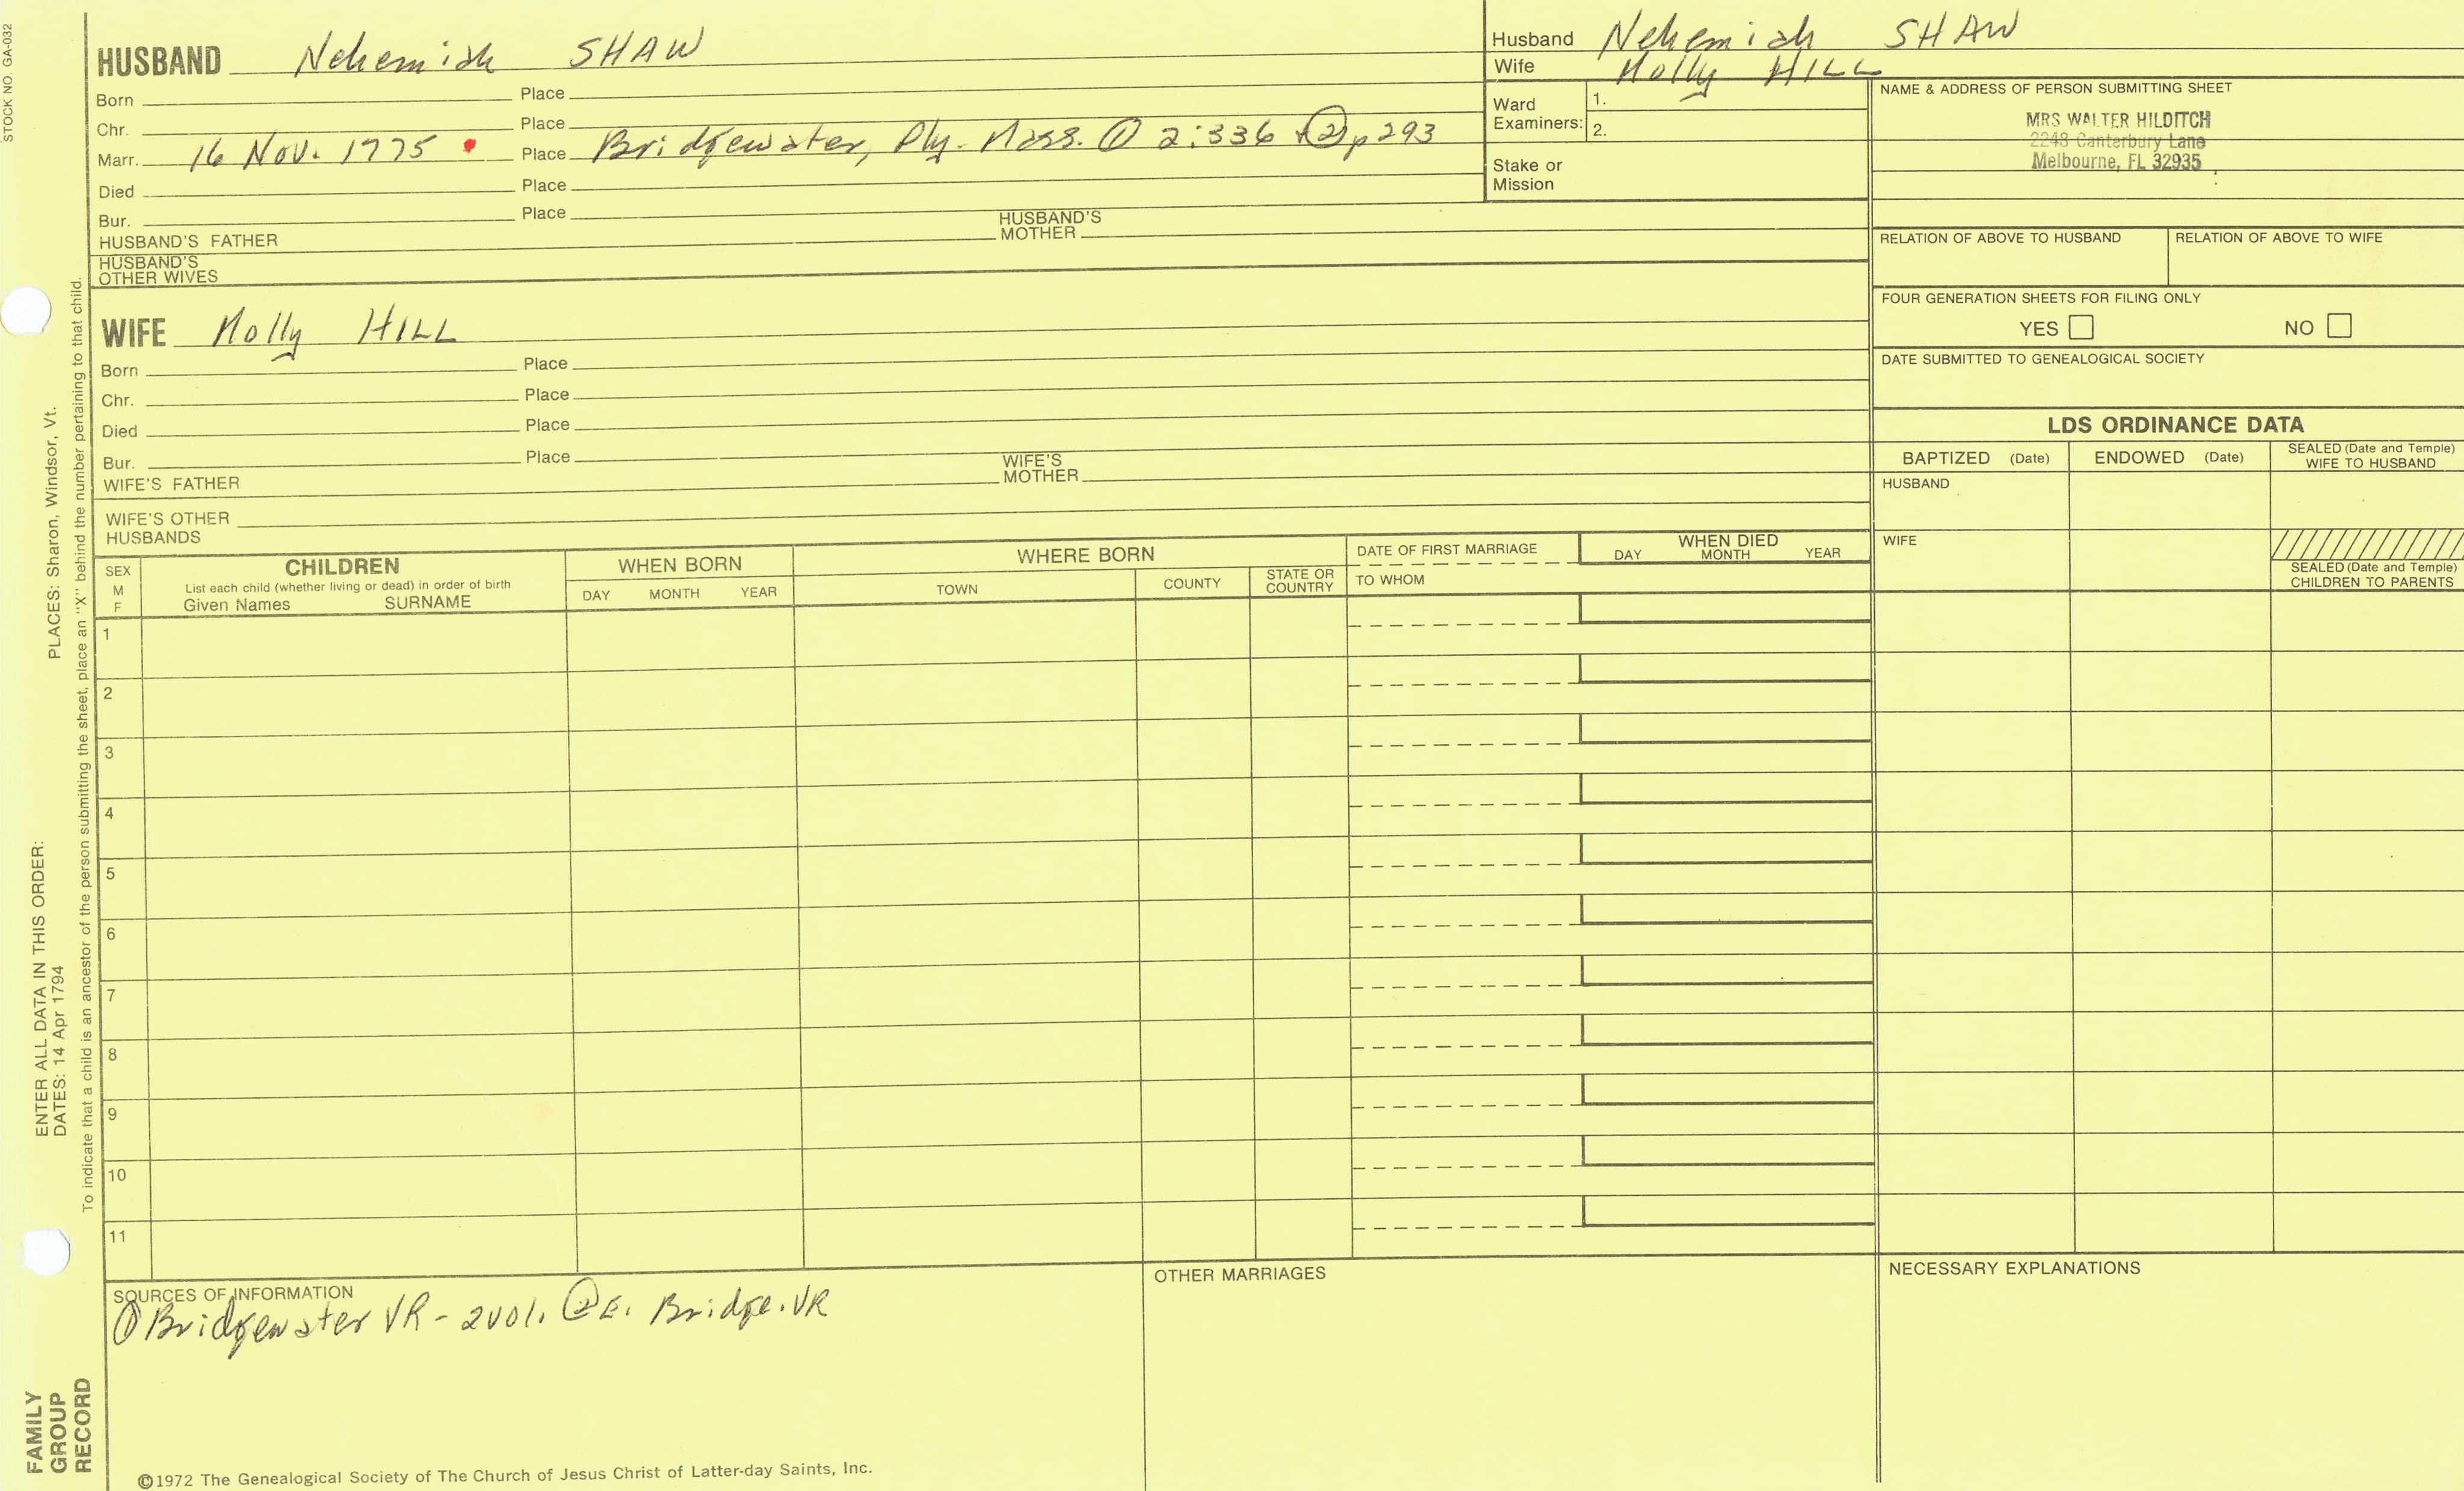 STOCK NO. GA-032
HUSBAND Nehemiah SHAW
Born Place
Chr. Place
Marr. 16 Nov. 1775 Place Bridgewater, Ply. Mass. ① 2:336 + ② p 293
Died Place
Bur. Place
HUSBAND'S FATHER HUSBAND'S MOTHER
HUSBAND'S OTHER WIVES
WIFE Molly HILL
Born Place
Chr. Place
Died Place
Bur. Place
WIFE'S FATHER WIFE'S MOTHER
WIFE'S OTHER HUSBANDS
Husband Nehemiah SHAW
Wife Molly HILL
Ward Examiners: 1.
2.
Stake or Mission
NAME & ADDRESS OF PERSON SUBMITTING SHEET
MRS WALTER HILDITCH
2248 Canterbury Lane
Melbourne, FL 32935
RELATION OF ABOVE TO HUSBAND RELATION OF ABOVE TO WIFE
FOUR GENERATION SHEETS FOR FILING ONLY
YES NO
DATE SUBMITTED TO GENEALOGICAL SOCIETY
LDS ORDINANCE DATA
BAPTIZED (Date) ENDOWED (Date) SEALED (Date and Temple) WIFE TO HUSBAND
HUSBAND
WIFE
SEALED (Date and Temple) CHILDREN TO PARENTS
SEX M F
CHILDREN
List each child (whether living or dead) in order of birth
Given Names SURNAME
WHEN BORN
DAY MONTH YEAR
WHERE BORN
TOWN COUNTY STATE OR COUNTRY
DATE OF FIRST MARRIAGE
TO WHOM
WHEN DIED
DAY MONTH YEAR
1
2
3
4
5
6
7
8
9
10
11
SOURCES OF INFORMATION
① Bridgewater VR - 2 vol. ② E. Bridge. VR
OTHER MARRIAGES
NECESSARY EXPLANATIONS
©1972 The Genealogical Society of The Church of Jesus Christ of Latter-day Saints, Inc.
FAMILY GROUP RECORD
ENTER ALL DATA IN THIS ORDER:
DATES: 14 Apr 1794
PLACES: Sharon, Windsor, Vt.
To indicate that a child is an ancestor of the person submitting the sheet, place an "X" behind the number pertaining to that child.